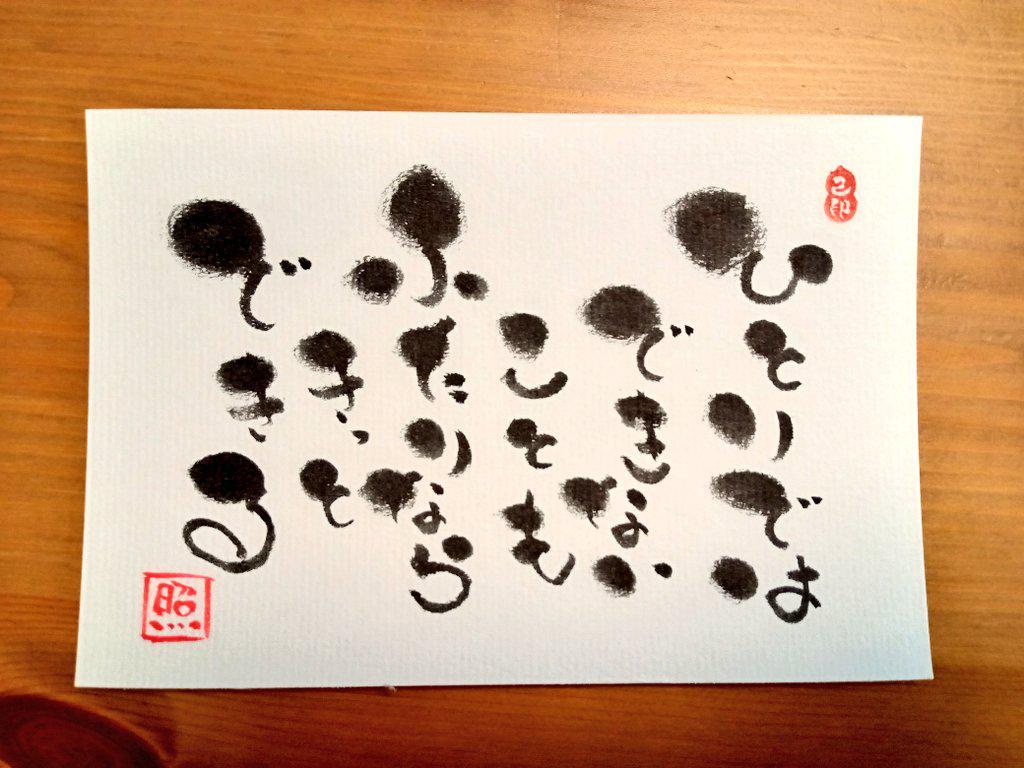 ひとりでは
できない
ことも
ふたりなら
きっと
できる
照